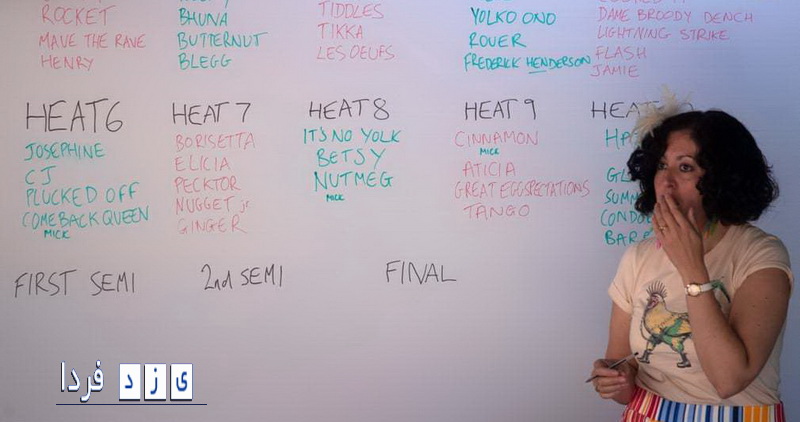 ROCKET
MAVE THE RAVE
HENRY
BHUNA
BUTTERNUT
BLEGG
TIDDLES
TIKKA
LES OEUFS
YOLKO ONO
ROVER
FREDERICK HENDERSON
DAME BROODY DENCH
LIGHTNING STRIKE
FLASH
JAMIE
HEAT 6
JOSEPHINE
CJ
PLUCKED OFF
COMEBACK QUEEN
MICK
HEAT 7
BORISETTA
ELICIA
PECKTOR
NUGGET jr
GINGER
HEAT 8
IT'S NO YOLK
BETSY
NUTMEG
MICK
HEAT 9
CINNAMON
MICK
ATICIA
GREAT EGGSPECTATIONS
TANGO
HEAT
FIRST SEMI
2nd SEMI
FINAL
یزد فردا